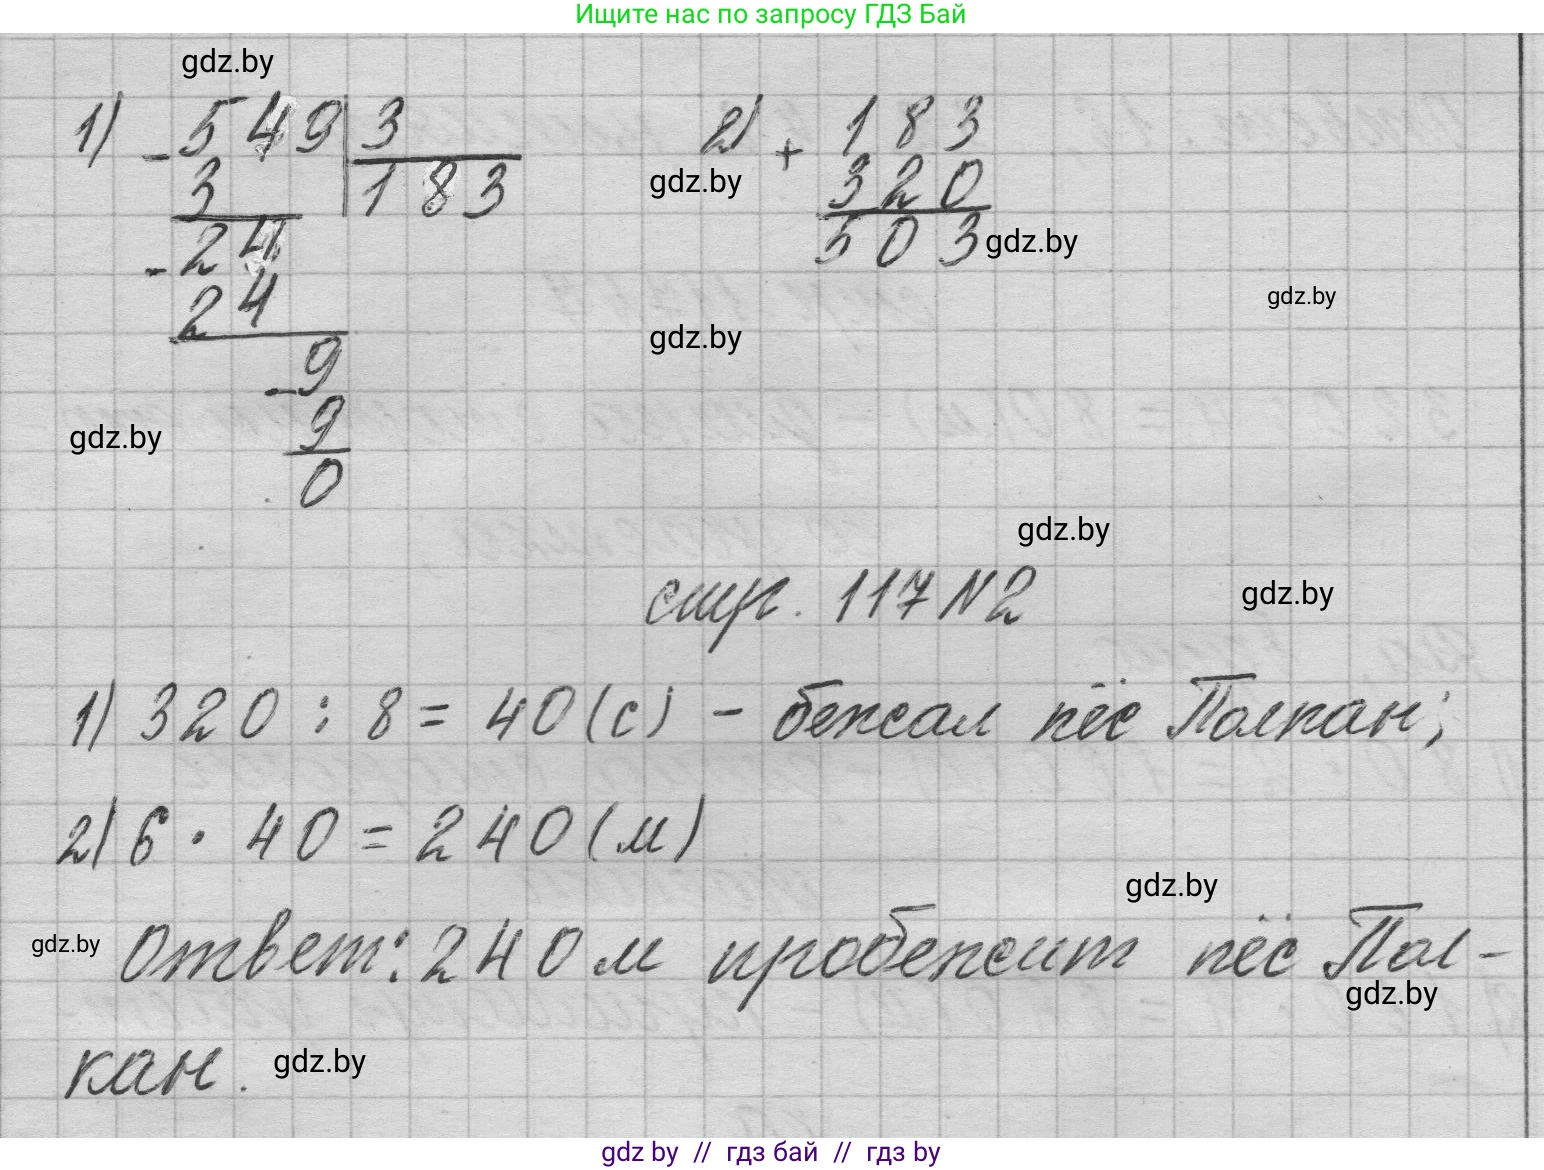 Ищите нас по запросу ГДЗ Бай
gdz.by
1) - 549 | 3
3 | 183
- 24
24
- 9
9
0
2) + 183
320
503
gdz.by
gdz.by
gdz.by
gdz.by
gdz.by
gdz.by
стр. 117 N 2
gdz.by
1) 320 : 8 = 40 (с) - бежал пёс Полкан;
2) 6 · 40 = 240 (м)
gdz.by
gdz.by
Ответ: 240 м пробежит пёс Пол-
gdz.by
кан.
gdz.by
gdz by // гдз бай // гдз by